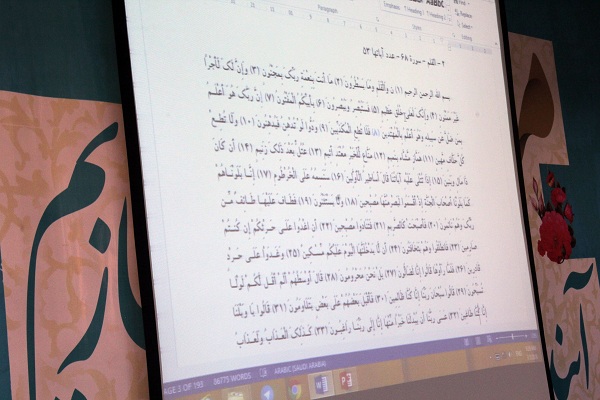 ٢ - القلم - سورة ٦٨ - عدد آياتها ٥٢
بسم الله الرحمن الرحيم (١) ن وَالْقَلَمِ وَمَا يَسْطُرُونَ (٢) مَا أَنتَ بِنِعْمَةِ رَبِّكَ بِمَجْنُونٍ (٣) وَإِنَّ لَكَ لَأَجْرًا
غَيْرَ مَمْنُونٍ (٤) وَإِنَّكَ لَعَلى خُلُقٍ عَظِيمٍ (٥) فَسَتُبْصِرُ وَيُبْصِرُونَ (٦) بِأَييِّكُمُ الْمَفْتُونُ (٧) إِنَّ رَبَّكَ هُوَ أَعْلَمُ
بِمَن ضَلَّ عَن سَبِيلِهِ وَهُوَ أَعْلَمُ بِالْمُهْتَدِينَ (٨) فَلَا تُطِعِ الْمُكَذِّبِينَ (٩) وَدُّوا لَوْ تُدْهِنُ فَيُدْهِنُونَ (١٠) وَلَا تُطِعْ
كُلَّ حَلَّافٍ مَّهِينٍ (١١) هَمَّازٍ مَّشَّاء بِنَمِيمٍ (١٢) مَنَّاعٍ لِّلْخَيْرِ مُعْتَدٍ أَثِيمٍ (١٣) عُتُلٍّ بَعْدَ ذَلِكَ زَنِيمٍ (١٤) أَن كَانَ
ذَا مَالٍ وَبَنِينَ (١٥) إِذَا تُتْلَى عَلَيْهِ آيَاتُنَا قَالَ أَسَاطِيرُ الْأَوَّلِينَ (١٦) سَنَسِمُهُ عَلَى الْخُرْطُومِ (١٧) إِنَّا بَلَوْنَاهُمْ
كَمَا بَلَوْنَا أَصْحَابَ الْجَنَّةِ إِذْ أَقْسَمُوا لَيَصْرِمُنَّهَا مُصْبِحِينَ (١٨) وَلَا يَسْتَثْنُونَ (١٩) فَطَافَ عَلَيْهَا طَائِفٌ مِّن
رَّبِّكَ وَهُمْ نَائِمُونَ (٢٠) فَأَصْبَحَتْ كَالصَّرِيمِ (٢١) فَتَنَادَوا مُصْبِحِينَ (٢٢) أَنِ اغْدُوا عَلَى حَرْثِكُمْ إِن كُنتُمْ
صَارِمِينَ (٢٣) فَانطَلَقُوا وَهُمْ يَتَخَافَتُونَ (٢٤) أَن لَّا يَدْخُلَنَّهَا الْيَوْمَ عَلَيْكُم مِّسْكِينٌ (٢٥) وَغَدَوْا عَلَى حَرْدٍ
قَادِرِينَ (٢٦) فَلَمَّا رَأَوْهَا قَالُوا إِنَّا لَضَالُّونَ (٢٧) بَلْ نَحْنُ مَحْرُومُونَ (٢٨) قَالَ أَوْسَطُهُمْ أَلَمْ أَقُل لَّكُمْ لَوْلَا
تُسَبِّحُونَ (٢٩) قَالُوا سُبْحَانَ رَبِّنَا إِنَّا كُنَّا ظَالِمِينَ (٣٠) فَأَقْبَلَ بَعْضُهُمْ عَلَى بَعْضٍ يَتَلَاوَمُونَ (٣١) قَالُوا يَا وَيْلَنَا
إِنَّا كُنَّا طَاغِينَ (٣٢) عَسَى رَبُّنَا أَن يُبْدِلَنَا خَيْرًا مِّنْهَا إِنَّا إِلَى رَبِّنَا رَاغِبُونَ (٣٣) كَذَلِكَ الْعَذَابُ وَلَعَذَابُ
PAGE 2 OF 193 86775 WORDS ARABIC (SAUDI ARABIA)